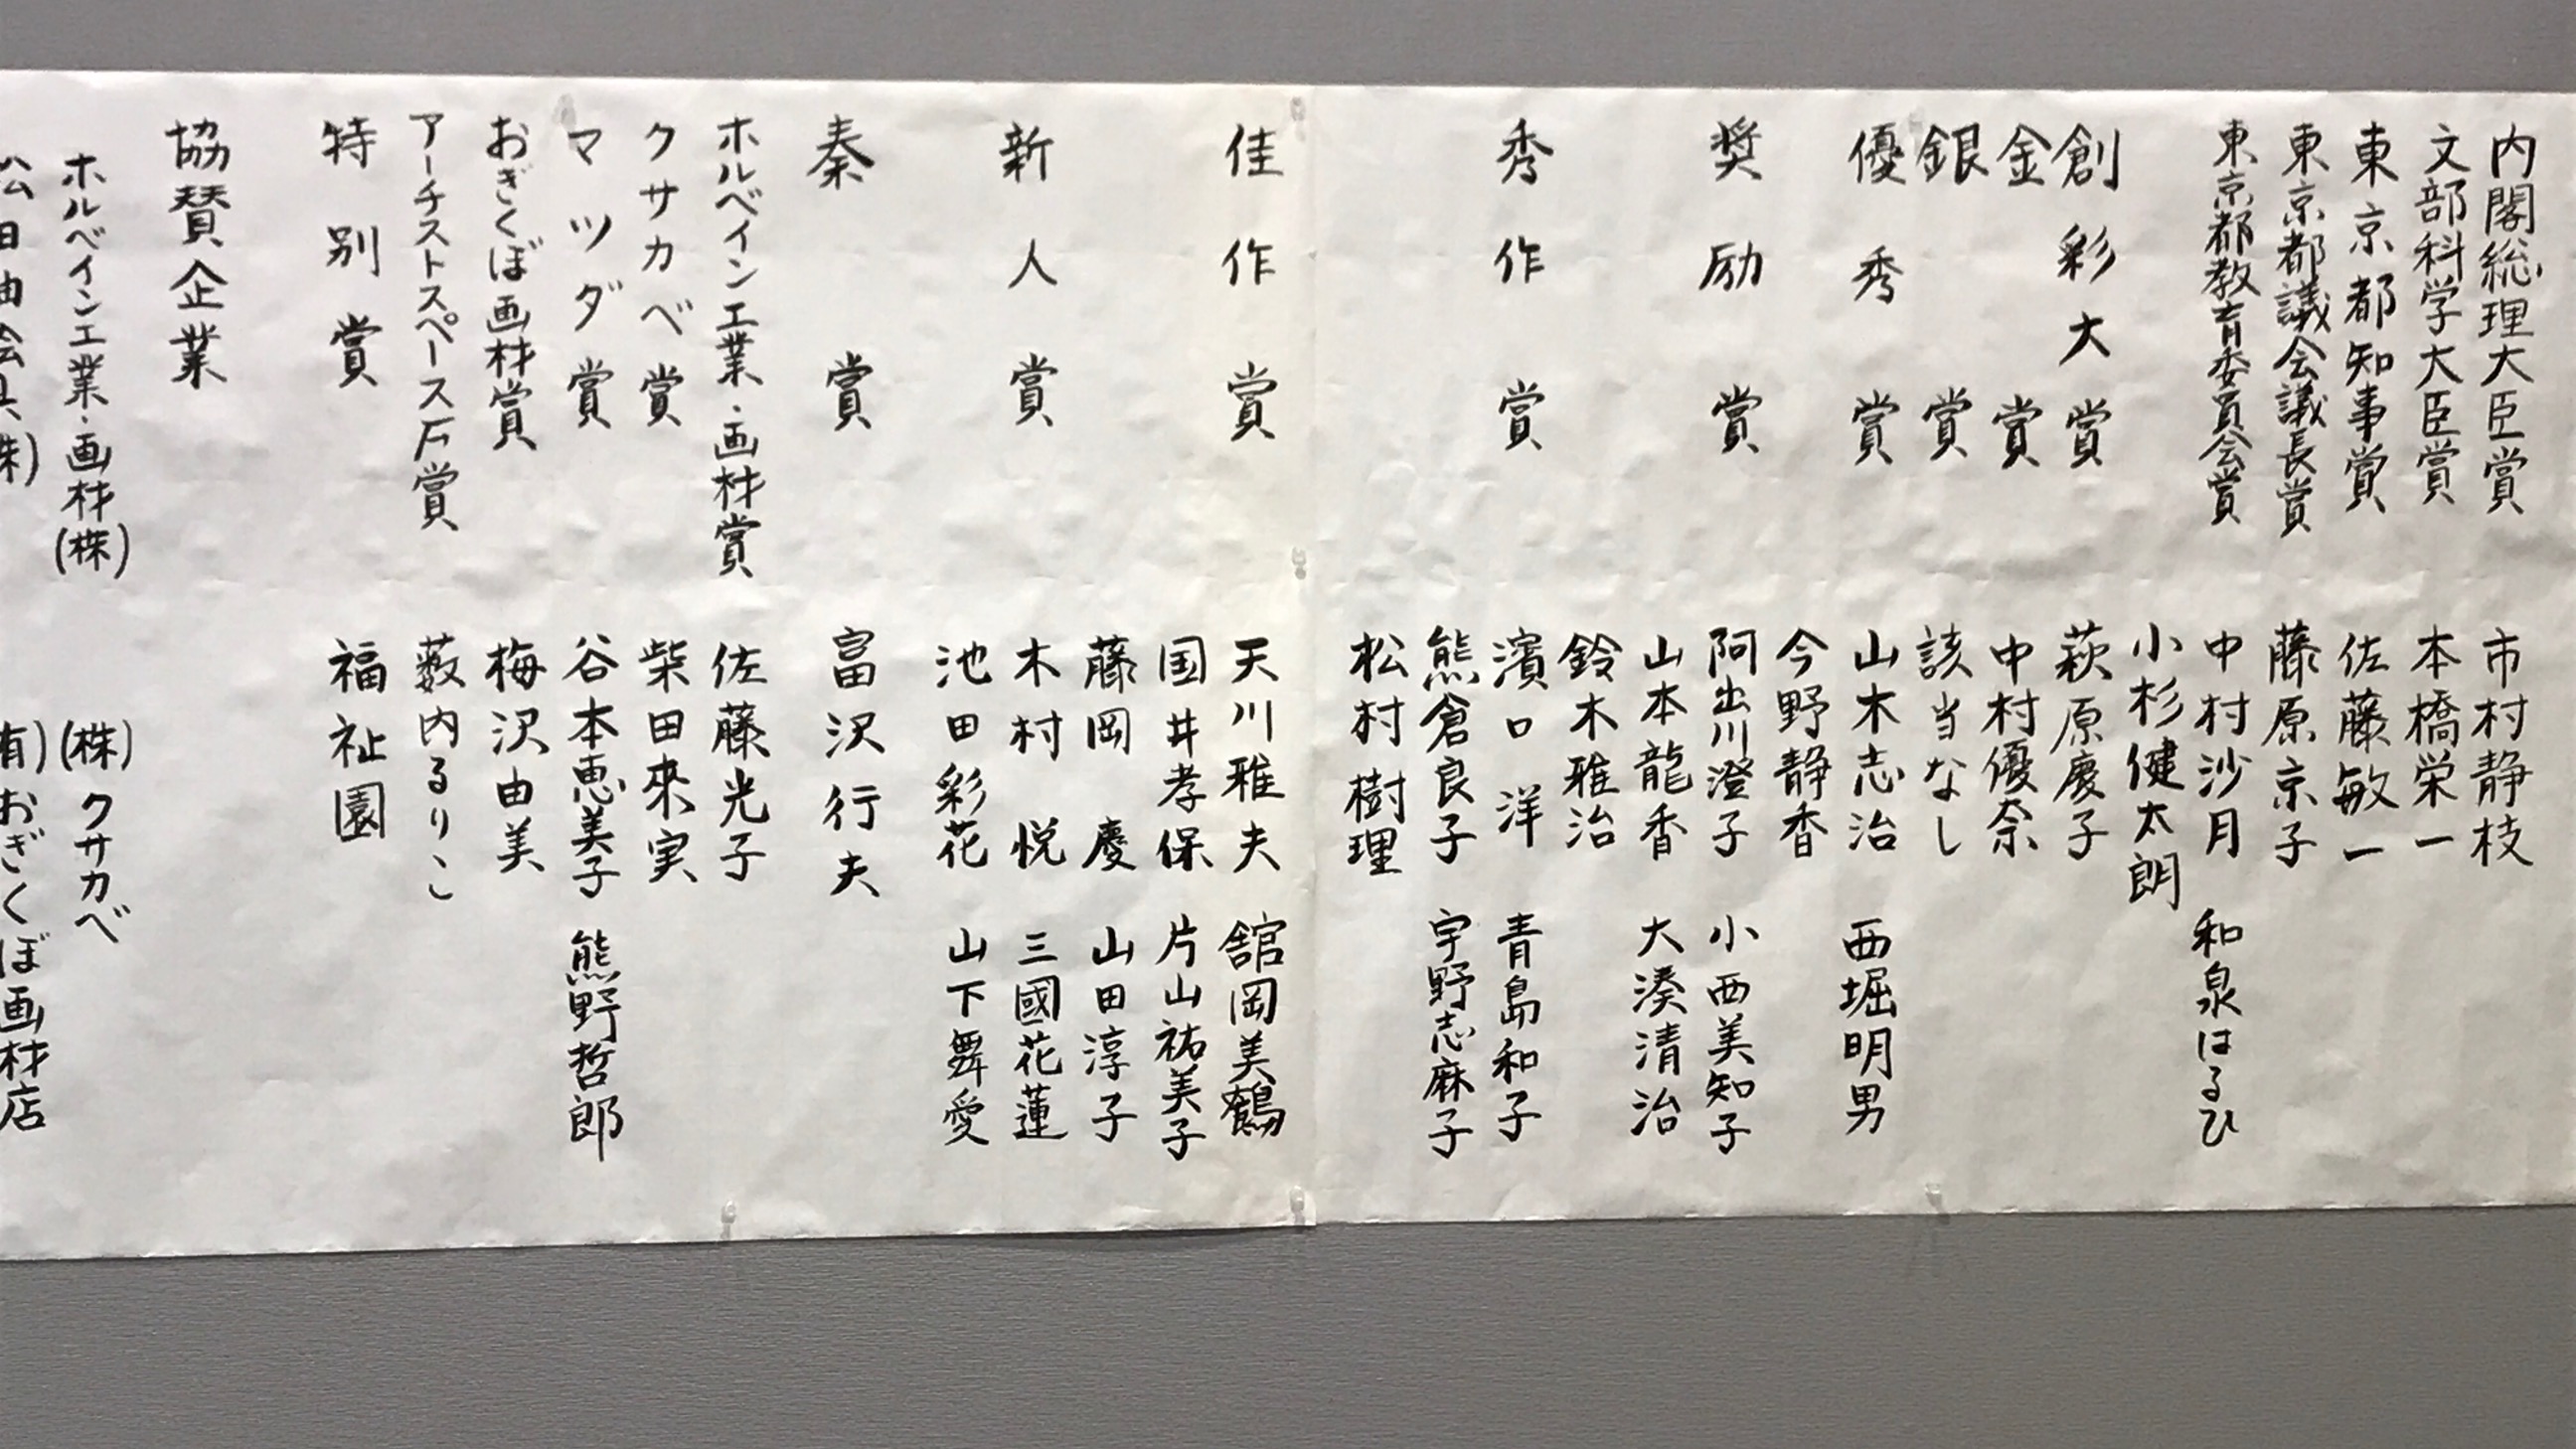 内閣総理大臣賞 市村静枝
文部科学大臣賞 本橋栄一
東京都知事賞 佐藤敏一
東京都議会議長賞 藤原京子
東京都教育委員会賞 中村沙月 和泉はるひ
小杉健太朗
創彩大賞 萩原慶子
金賞 中村優奈
銀賞 該当なし
優秀賞 山木志治 西堀明男
今野静香
奨励賞 阿出川澄子 小西美知子
山本龍香 大湊清治
鈴木雅治
秀作賞 濱口洋 青島和子
熊倉良子 宇野志麻子
松村樹理
佳作賞 天川雅夫 舘岡美鶴
国井孝保 片山祐美子
藤岡慶 山田淳子
新人賞 木村悦 三國花蓮
池田彩花 山下舞愛
秦賞 富沢行夫
ホルベイン工業・画材賞 佐藤光子
クサカベ賞 柴田來実
マツダ賞 谷本恵美子 熊野哲郎
おぎくぼ画材賞 梅沢由美
アーチストスペース賞 薮内るりこ
特別賞 福祉園
協賛企業
ホルベイン工業・画材(株) (株)クサカベ
松田油絵具(株) 有)おぎくぼ画材店